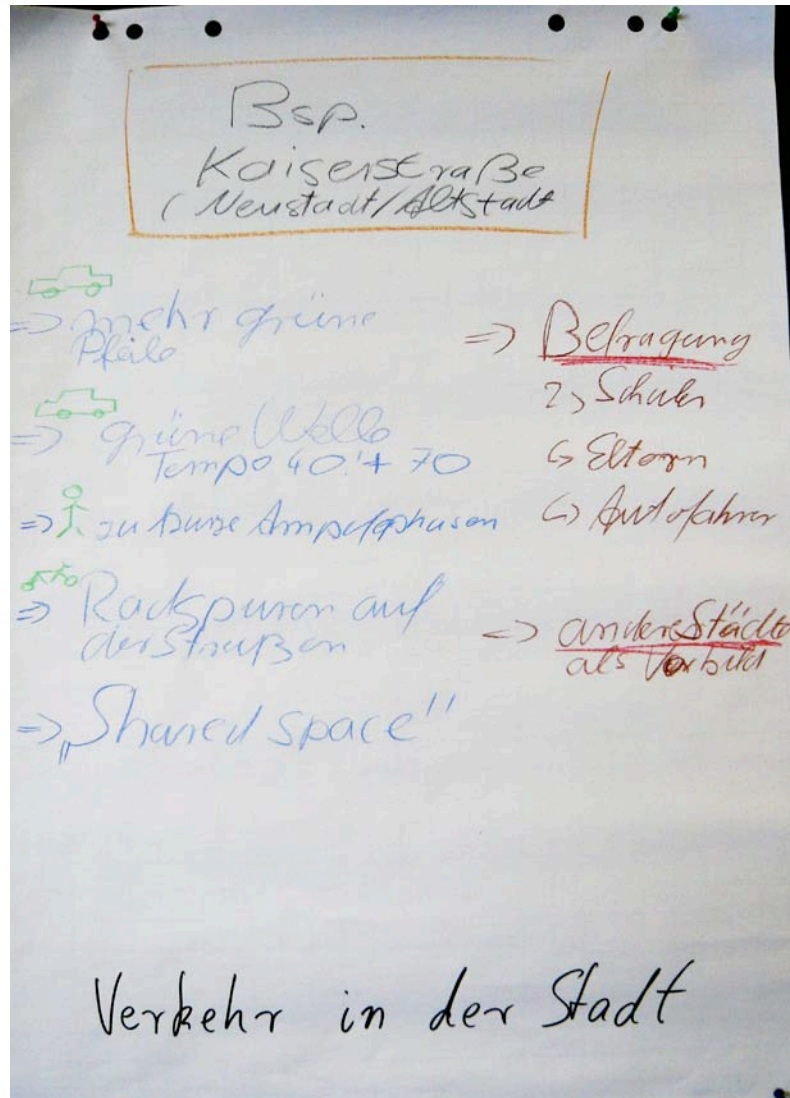 Bsp.
Kaiserstraße
(Neustadt/Altstadt
=> mehr grüne
Pfeile
=> grüne Welle
Tempo 40!+ 70
=> zu kurze Ampelphasen
=> Radspuren auf
der Straßen
=> „Shared space"
=> Befragung
↳ Schüler
↳ Eltern
↳ Autofahrer
=> andere Städte
als Vorbild
Verkehr in der Stadt